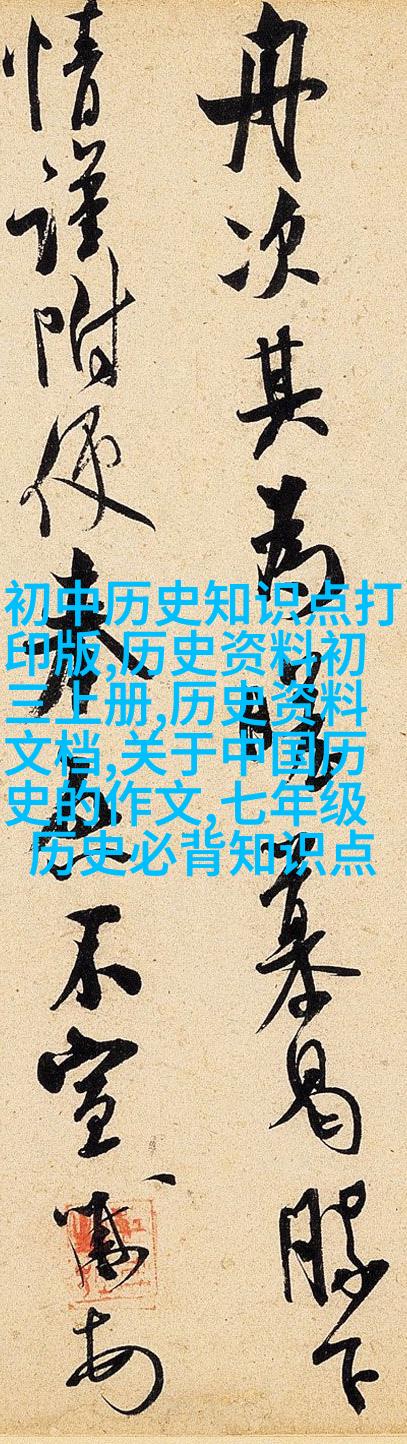 舟次其為慕曷勝下
情謹附便奉不宣
初中历史知识点打
印版,历史资料初
三上册,历史资料
文档,关于中国历
史的作文,七年级
历史必背知识点